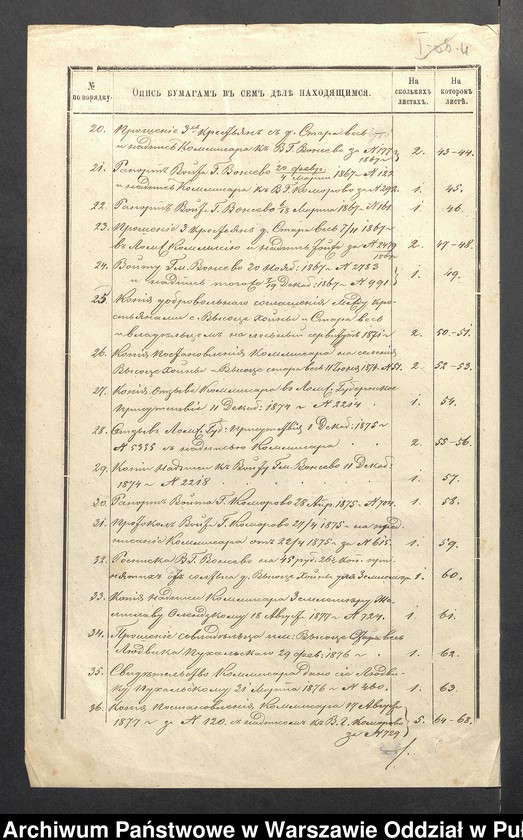 № по порядку.
Опись бумагамъ въ семъ дѣлѣ находящимся.
На сколькихъ листахъ.
На которомъ листѣ.
20. Прошеніе 3хъ крестьянъ съ д. Старавесь
и надпись Коммисара къ В Г Вонсево за № 777 2. 43-44.
1867 г.
21. Рапортъ Войта Г. Вонсево 20 февр./4 Марта 1867 г. № 122
и надпись Коммисара къ В. Г. Коморово за № 292 1. 45.
22. Рапортъ Войта Г. Вонсево 6/18 Марта 1867 г. № 161 1. 46.
23. Прошеніе 3 Крестьянъ д. Старавесь 7/11 1867 г.
въ Ломж. Коммисію и надпись за № 2479 2. 47-48.
1867 г.
24. Войту Гм. Вонсево 20 Нояб: 1867 г. № 2783
и надпись того 7/19 Декаб: 1867 г. № 991 1. 49.
25 Копія добровольнаго соглашенія между кре-
стьянами с. Высоце Хойны и Старавесь
и владѣльцемъ на лѣсный сервитутъ 1871 г. 2. 50-51.
26. Копія Постановленія Коммисара на селенія
Высоце Хойны и Высоце старавесь 11 1874 г. № 51. 2. 52-53.
27. Копія Отзыва Коммисара въ Ломж. Губернское
Присутствіе 11 Декаб: 1874 г. № 2214 1. 54.
28. Отзывъ Ломж. Губ: Присутствія 1 Декаб: 1875 г.
№ 5335 съ надписью Коммисара 2. 55-56.
29. Копія надписи къ Войту Гм. Вонсево 11 Декаб:
1874 г. № 2218 1. 57.
30. Рапортъ Войта Г. Коморово 28 Апр. 1875 г. № 704. 1. 58.
31. Протоколъ Войта Г. Коморово 27/4 1875 г. на пред-
писаніе Коммисара отъ 22/4 1875 г. за № 615. 1. 59.
32. Росписка В. Г. Вонсево на 45 руб. 26½ коп. при-
нятыхъ отъ солтыса д. Высоце Хойны для Землемѣра 1. 60.
33. Копія надписи Коммисара Землемѣру
Олендзкому 18 Августа 1877 г. № 724. 1. 61.
34. Прошеніе совладѣльца им. Высоце Старавесь
Людвика Пухальскаго 29 фев: 1876 г. 1. 62.
35. Свидѣтельство Коммисара данное Людви-
ку Пухальскому 21 Марта 1876 г. № 460. 1. 63.
36. Копія Постановленія Коммисара 17 Августа
1877 г. за № 120. съ надписью къ В. Г. Коморово 5. 64-68.
за № 729
Archiwum Państwowe w Warszawie Oddział w Puł